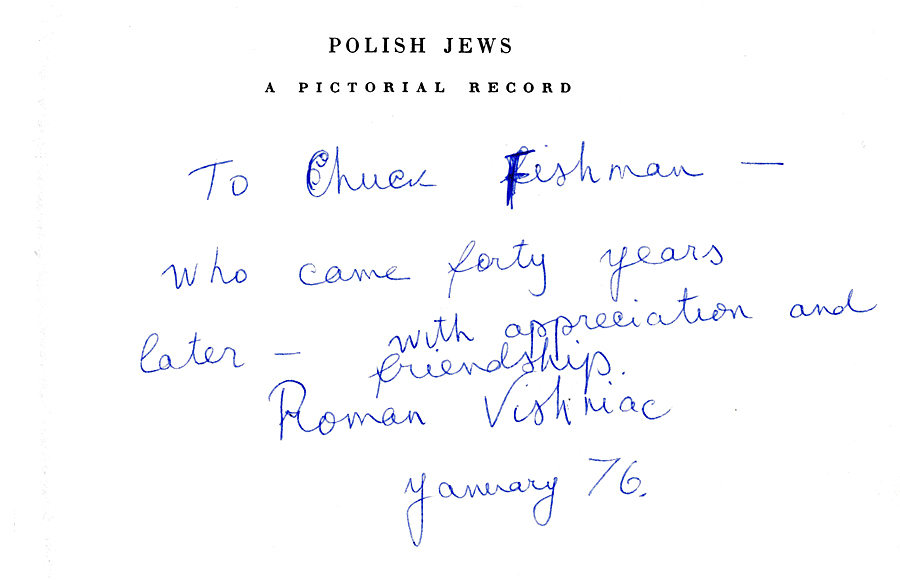 POLISH JEWS
A PICTORIAL RECORD
To Chuck Fishman —
who came forty years
later — with appreciation and
friendship.
Roman Vishniac
yanuary 76.